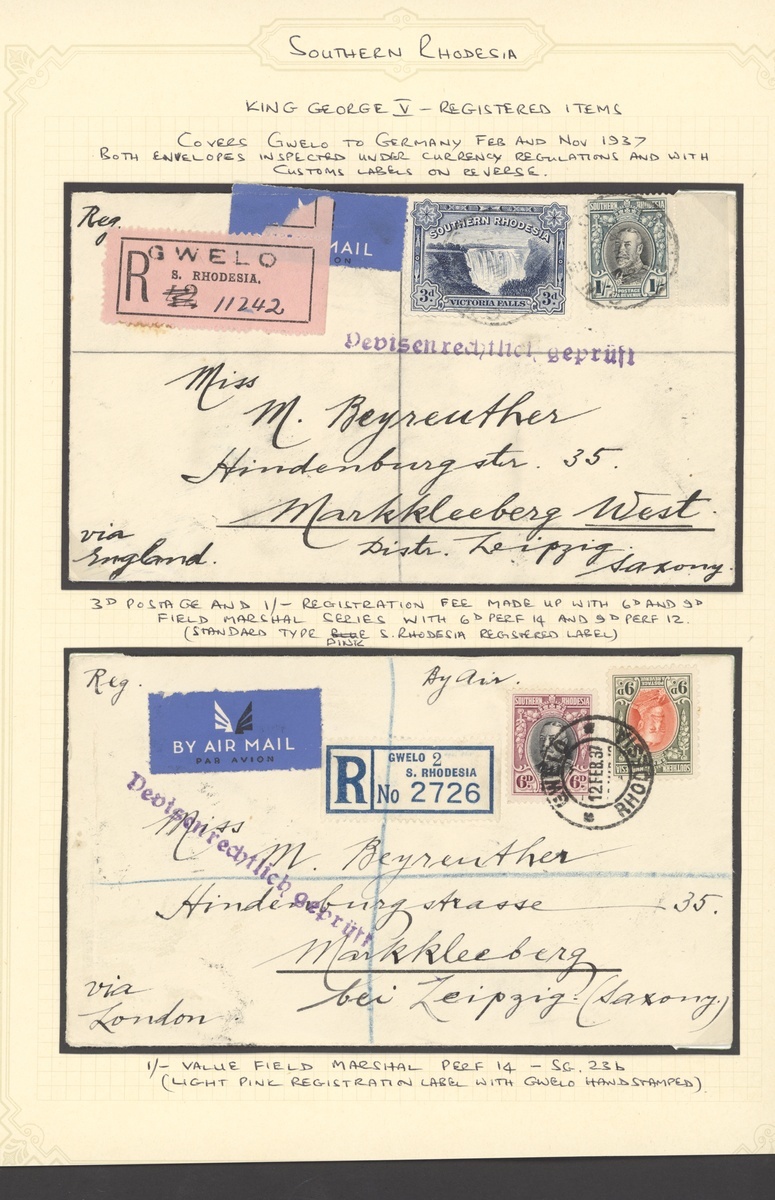 SOUTHERN RHODESIA
KING GEORGE V – REGISTERED ITEMS
COVERS GWELO TO GERMANY FEB AND NOV 1937
BOTH ENVELOPES INSPECTED UNDER CURRENCY REGULATIONS AND WITH
CUSTOMS LABELS ON REVERSE.
Reg.
MAIL
ON
R
GWELO
S. RHODESIA,
11242
SOUTHERN RHODESIA
3d 3d
VICTORIA FALLS
SOUTHERN RHODESIA
1/- 1/-
POSTAGE
& REVENUE
Devisenrechtlich geprüft
Miss
M. Beyreuther
Hindenburgstr. 35.
Markkleeberg West.
Distr. Leipzig
Saxony.
via
England.
3D POSTAGE AND 1/- REGISTRATION FEE MADE UP WITH 6D AND 9D
FIELD MARSHAL SERIES WITH 6D PERF 14 AND 9D PERF 12.
(STANDARD TYPE BLUE S. RHODESIA REGISTERED LABEL)
PINK
Reg.
By Air.
BY AIR MAIL
PAR AVION
R
GWELO 2
S. RHODESIA
No 2726
SOUTHERN RHODESIA
6D 6D
9D 9D
GWELO
12 FEB 37
RHODESIA
Devisenrechtlich geprüft
Miss
M. Beyreuther
Hindenburgstrasse 35.
Markkleeberg
bei Leipzig. (Saxony.)
via
London.
1/- VALUE FIELD MARSHAL PERF 14 – SG. 23b
(LIGHT PINK REGISTRATION LABEL WITH GWELO HANDSTAMPED)